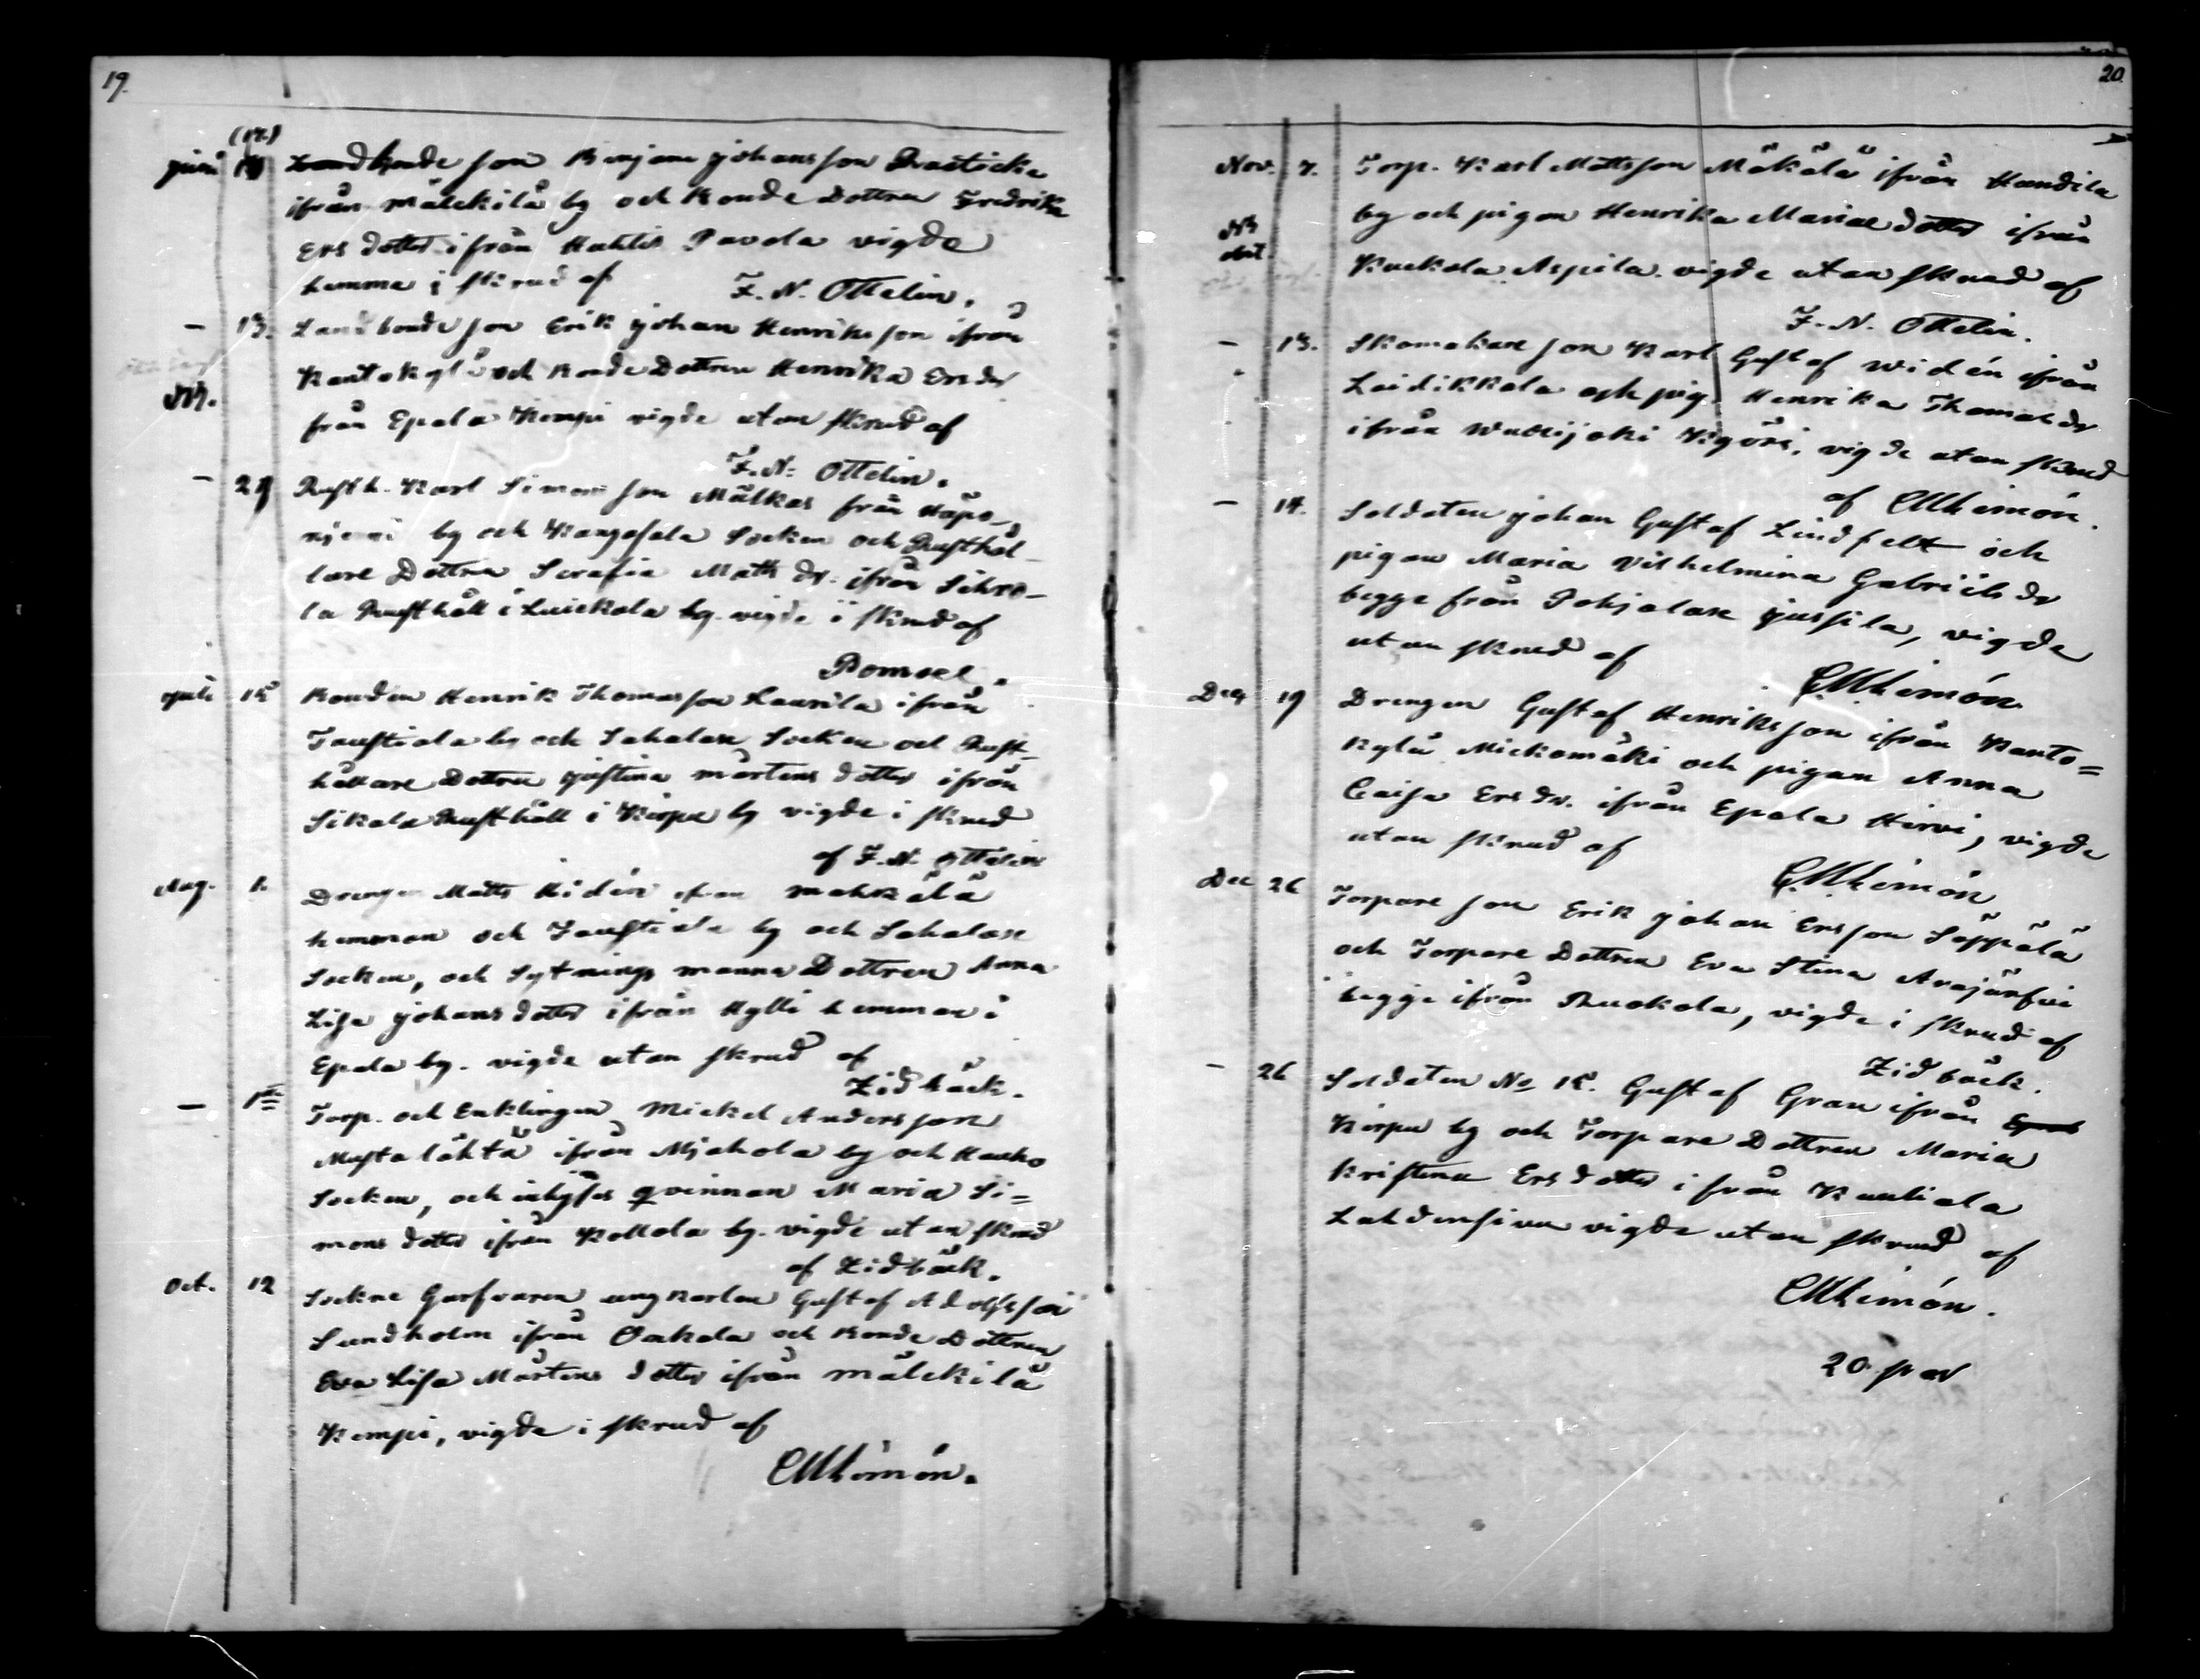 19.
(12)
Juni 13 Landbonde son Benjam Johansson Prasticka
ifrån Mälckilä by och Bonde Dottren Fredrika
Ers dotter ifrån Huhtis Pavola vigde
hemma i skrud af F. N. Ottelin.
— 13. Landbonde son Erik Johan Henriksson ifrån
Kantokylä och Bonde Dottren Henrika Ersdr
NB.
från Epala Kempi vigde utan skrud af
F. N. Ottelin.
— 29 Rusth. Karl Simonsson Mälkas från Hapo-
niemi by och Kangasala Socken och Rusthål-
lare Dottren Serafia Matts dr. ifrån Sihvo-
la Rusthåll i Luickala by. vigde i skrud af
Pomoel.
Juli 15 Bonden Henrik Thomasson Laurila ifrån
Taustiala by och Sahalax Socken och Rust-
hållare Dottren Justina Mårtens dotter ifrån
Sikala Rusthåll i Kirpu by vigde i skrud
af F. N. Ottelin
Aug. 1. Drengen Matts Hidén ifrån Mahkälä
hemman och Taustiala by och Sahalax
Socken, och Sytnings manna Dottren Anna
Lisa Johans dotter ifrån Hylli hemman i
Epala by. vigde utan skrud af
Lidbäck.
— 1ste Torp. och Enklingen Mickel Andersson
Mustalähtä ifrån Mjahola by och Hauho
Socken, och inhyses qvinnan Maria Si=
mons dotter ifrån Kollola by. vigde utan skrud
af Lidbäck.
Oct. 12 Sockne Garfvaren ungkarlen Gustaf Adolfsson
Sundholm ifrån Onkala och Bonde Dottren
Eva Lisa Mårtens dotter ifrån Mälckilä
Kempi, vigde i skrud af
CMLimón.
20.
Nov. 7. Torp. Karl Mattsson Mäkälä ifrån Haudila
by och pigan Henrika Mariae dotter ifrån
NB
Kuckola Aspila. vigde utan skrud af
F. N. Ottelin.
— 13. Skomakare son Karl Gustaf Widén ifrån
Laidikkala och pig. Henrika Thomasdr
ifrån Wuolijoki Kyöri, vigde utan skrud
af CMLimón.
— 14. Soldaten Johan Gustaf Lindfelt och
pigan Maria Vilhelmina Gabriels dr
begge från Pohjalax Jussila, vigde
utan skrud af
CMLimón.
Dec 19 Drengen Gustaf Henriksson ifrån Kanto=
kylä Mickomäki och pigan Anna
Caisa Ers dr. ifrån Epala Hirvi, vigde
utan skrud af
CMLimón
Dec 26 Torpare son Erik Johan Ersson Seppälä
och Torpare Dottren Eva Stina Arajärfvi
begge ifrån Ruokola, vigde i skrud af
Lidbäck.
— 26 Soldaten No 15. Gustaf Gran ifrån
Kirpu by och Torpare Dottren Maria
Kristina Ers dotter ifrån Kuuliala
Lahdensivu vigde utan skrud af
CMLimón.
20 par